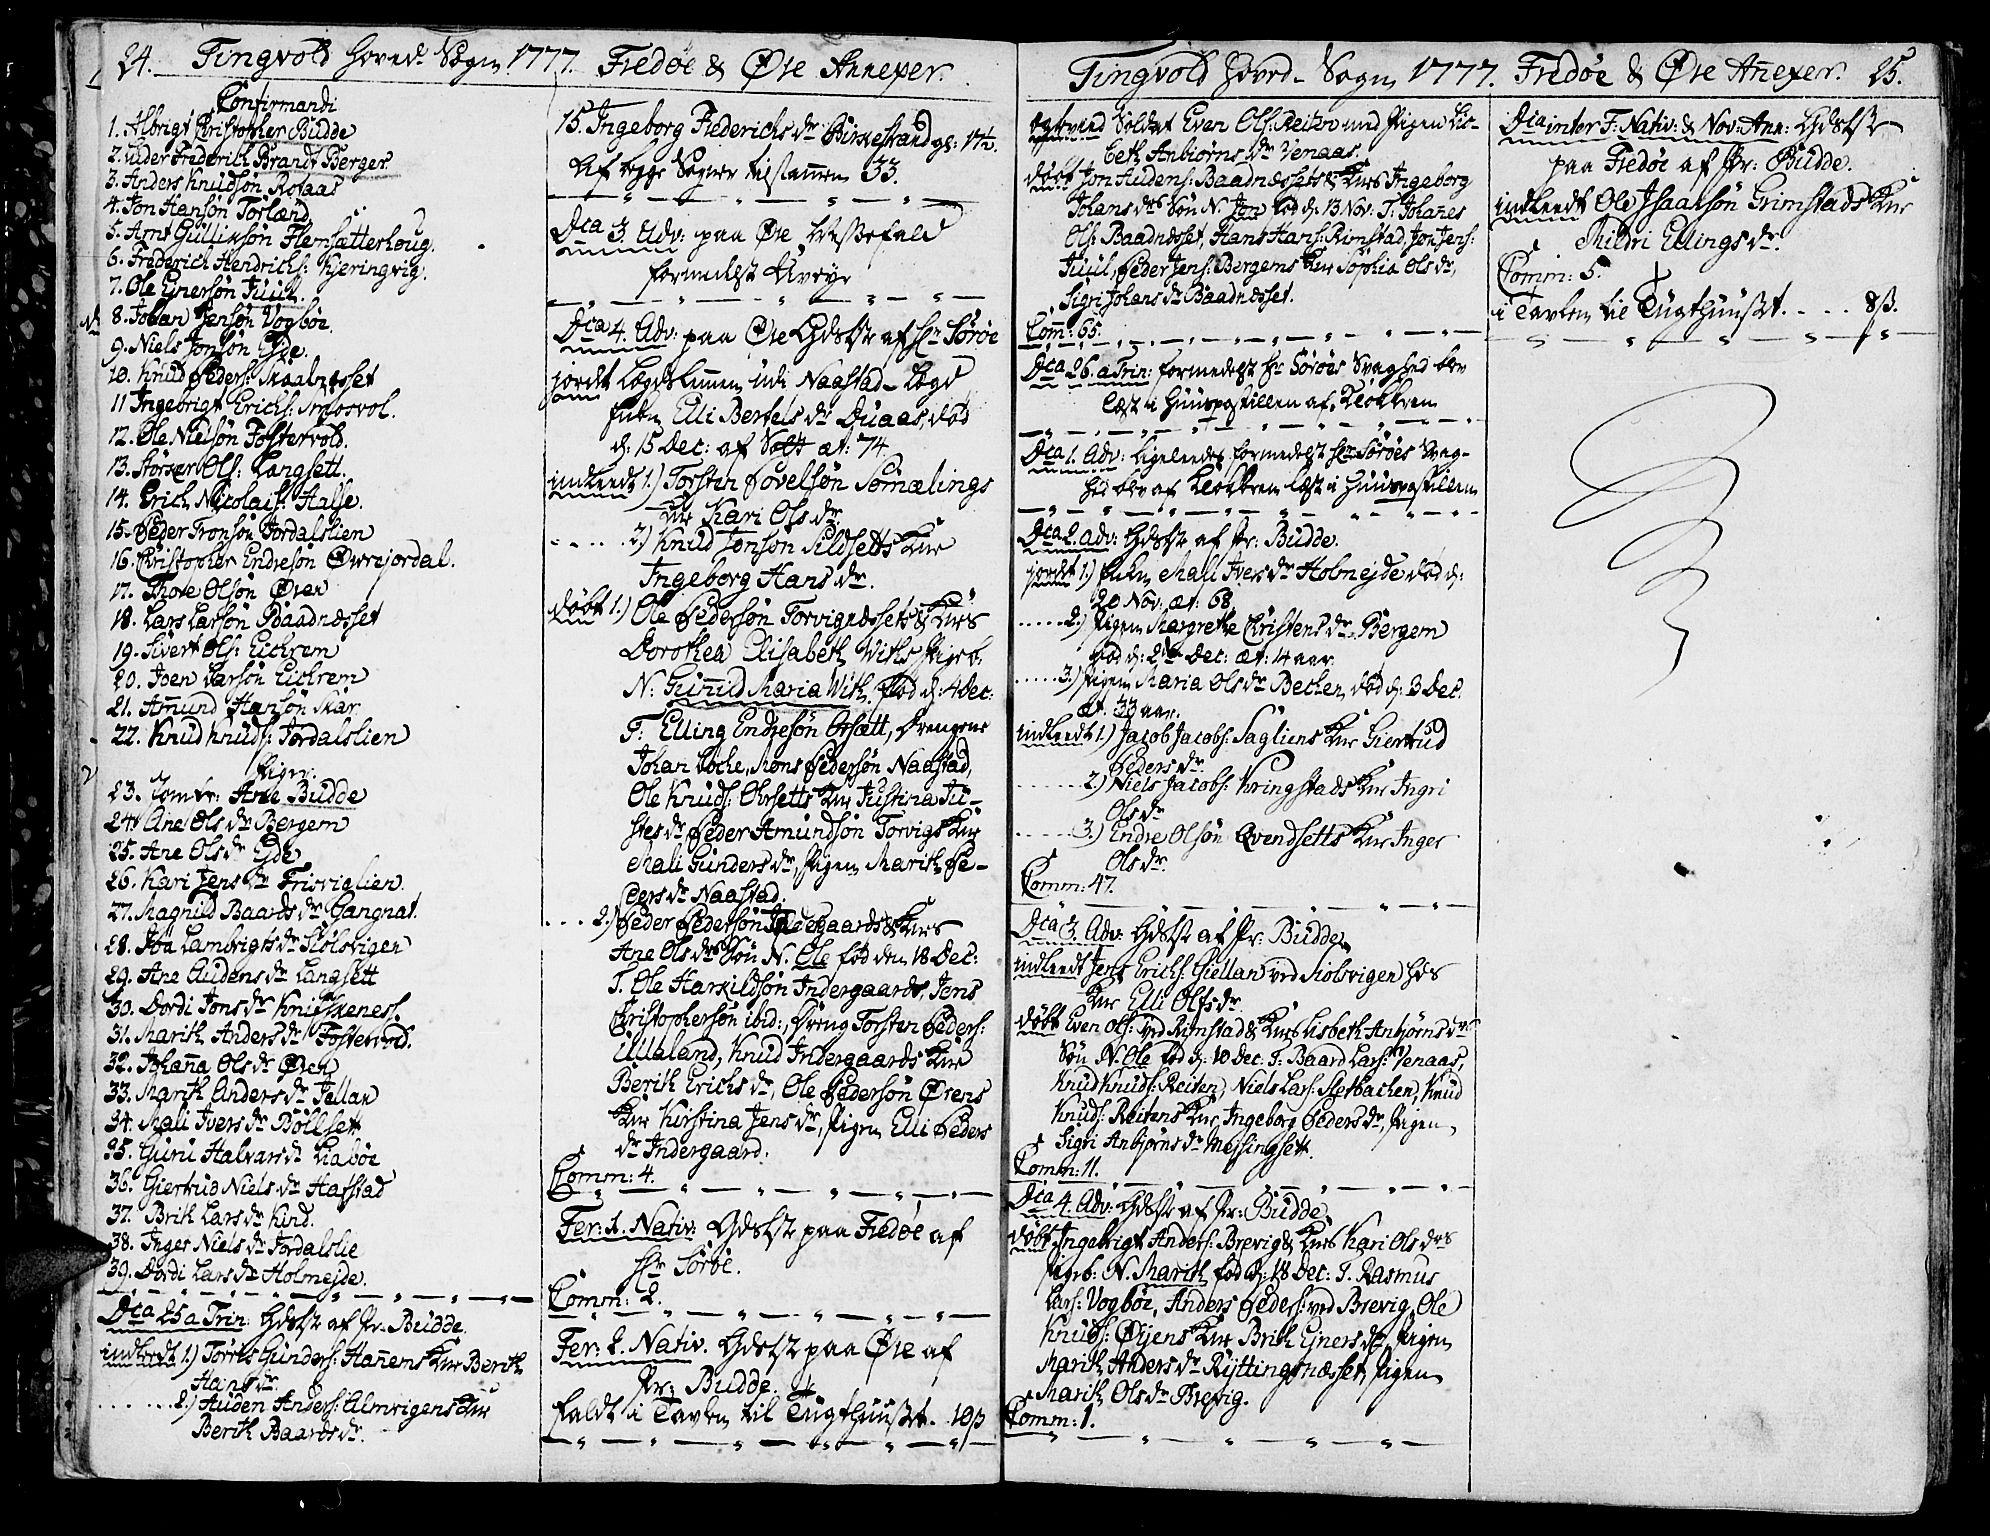 24. Tingvold Hoved Sogn 1777. Fredøe & Øre Annexer.
Confirmandi
1. Albrigt Christopher Budde
2. Peder Frederich Brandt Berger
3. Anders Knudsøn Rotaas
4. Jon Hansøn Torland
5. Arnt Gullichsøn Flemsætterhoug.
6. Frederich Hendrichs: Kjeringvig.
7. Ole Ejnersøn Juul.
8. Johan Jensøn Vogbøe.
9. Niels Jonsøn Ejde.
10. Knud Peders: Skaalvesset
11 Ingebrigt Erichs: Smosvol.
12. Ole Nielsøn Fostervold.
13. Størser Ols: Langsett.
14. Erich Nicolais: Halse.
15. Peder Tronsøn Jordalslien
16. Christopher Endresøn Øvrejordal.
17. Thore Olsøn Øren
18. Lars Larsøn Baadnesset
19. Sivert Ols: Eichrem
20. Joen Larsøn Eichrem
21. Amund Hansøn Skar
22. Knud Knuds: Jordalslien
Piger.
23. Jomfr: Ane Budde
24. Ane Ols dr Bergem
25. Ane Ols dr Ejde
26. Kari Jens dr Trisviglien.
27. Magnild Baards dr Gangnat.
28. Joa Lambrigts dr Skolsvigen
29. Ane Audens dr Langsett
30. Dordi Jons dr Knutskenes.
31. Marith Anders dr Fostervold.
32. Johanna Ols dr Øren
33. Marith Anders dr Jellan
34. Mali Ivers dr Böllsett
35. Guru Halvars dr Liabøe
36. Giertrud Niels dr Hafstad
37. Brit Lars dr Kind.
38. Inger Niels dr Jordalslie
39. Dordi Lars dr Holmejde.
Dca 25 a Trin: Gdstst af Pr. Budde
indleedt 1.) Torres Gunders: Hanens Kne Berith
Hans dr.
2.) Auden Anders: Almvigens Kne
Berith Baards dr.
15. Ingeborg Frederichs dr Birkestrand gl: 17½.
Af begge Sogner tilsammen 33.
Dca 3. Adv: paa Øre Messefald
formedelst Uveyr
Dca 4. Adv: paa Øre Gdstst af Hr Sörøe
jordet Lægdslemmen inde Naastad-Lægd
Enken Elli Bertels dr Duaas, død
d: 15 Dec: af Sott æt: 74.
indleedt 1.) Torsten Povelsøn Somælings
Kne Kari Ols dr.
2) Knud Jonsøn Sildsetts Kne
Ingeborg Hans dr.
døbt 1.) Ole Pedersøn Torvignessets & Knes
Dorothea Elisabeth Withs Pigeb.
N: Gunnild Maria With. fød d: 4 Dec:
T: Elling Endresøn Orsætt, Drengene
Johan Loche, Mons Pedersøn Naastad,
Ole Knuds: Orsetts Kne Justina Ju-
stes dr Peder Amundsøn Torvigs Kne
Mali Gunders dr, Pigen Marith Pe-
ders dr Naastad.
2.) Peder Pedersøn Indergaards & Knes
Ane Ols drs Søn N. Ole fød den 18 Dec:
T. Ole Harkildsøn Indergaards, Jens
Christophersøn ibid:, Dreng Torsten Peders:
Ullaland, Knud Indergaards Kne
Berith Erichs dr, Ole Pedersøn Ørens
Kne Kirstina Jens dr, Pigen Elli Peders
dr Indergaard.
Comm: 4.
Fer: 1. Nativ. Gdstst paa Fredøe af
Hr Sörøe.
Comm: 2.
Fer: 2. Nativ. Gdstst paa Øre af
Pr: Budde
faldt i Tavlen til Tugthuuset. 10 β
Tingvold Hovd- Sogn 1777. Fredøe & Øre Annexer. 25.
egtevied Soldat Even Ols: Reiten med Pigen Lis-
beth Anbiørns dr Venaas.
døbt Jon Audens: Baadnessets & Knes Ingeborg
Johans drs Søn N. Jon fød d. 13 Nov. T. Johanes
Ols: Baadnesset, Hans Hans: Rimstad, Jon Jens:
Juul, Peder Jens: Bergems Kne Sophia Ols dr,
Sigri Johans dr Baadnesset.
Comm: 65.
Dca 26. a Trin: formedelst Hr Sörøes Svaghed blev
læst i Huuspostillen af Klokkren
Dca 1. Adv: ligeleedes formedelst Hr Sörøes Svag-
hed blev af Klokkren læst i Huuspostillen
Dca 2. Adv: Gdstst af Pr: Budde.
jordet 1.) Enken Mali Ivers dr Holmejde død d:
20 Nov: æt: 68
2.) Pigen Margrethe Christens dr Bergem
død d: 2 Dec: æt: 14 aar.
3.) Pigen Maria Ols dr Bechen død d: 3 Dec.
æt: 33 aar.
indleedt 1.) Jacob Jacobs: Sagliens Kne Giertrud
Peders dr.
2.) Niels Jacobs: Kringstads Kne Ingri
Ols dr
3.) Endre Olsøn Qvendsetts Kne Inger
Ols dr.
Comm: 47.
Dca 3. Adv: Gdstst af Pr: Budde
indleedt Jens Erichs: Giellan ved Skolsvigen Hds
Kne Elli Olfs dr.
døbt Even Ols: ved Rimstad & Knes Lisbeth Anbjørns drs
Søn N. Ole fød d: 10 Dec: T: Baard Lars: Venaas,
Knud Knuds: Reiten, Niels Lars: Sletbachen, Knud
Knuds: Reitens Kne Ingeborg Peders dr, Pigen
Sigri Anbjørns dr Messingsett.
Comm: 11.
Dca 4. Adv: Gdstst af Pr: Budde
døbt Ingebrigt Anders: Brevig & Knes Kari Ols drs
Pigeb: N. Marith fød d: 18 Dec: T. Rasmus
Lars: Vogbøe, Anders Peders: ved Brevig, Ole
Knuds: Øyens Kne Brith Ejners dr Pigen
Marith Anders dr Ryttingsnesset, Pigen
Marith Ols dr Brevig.
Comm: 1.
Dca inter F: Nativ: & Nov: Ann: Gdstst
paa Fredøe af Pr: Budde.
indleedt Ole Isaaksøn Grimstads Kne
Mildri Ellings dr.
Comm: 5.
i Tavlen til Tugthuuset. . . . . 8 β.